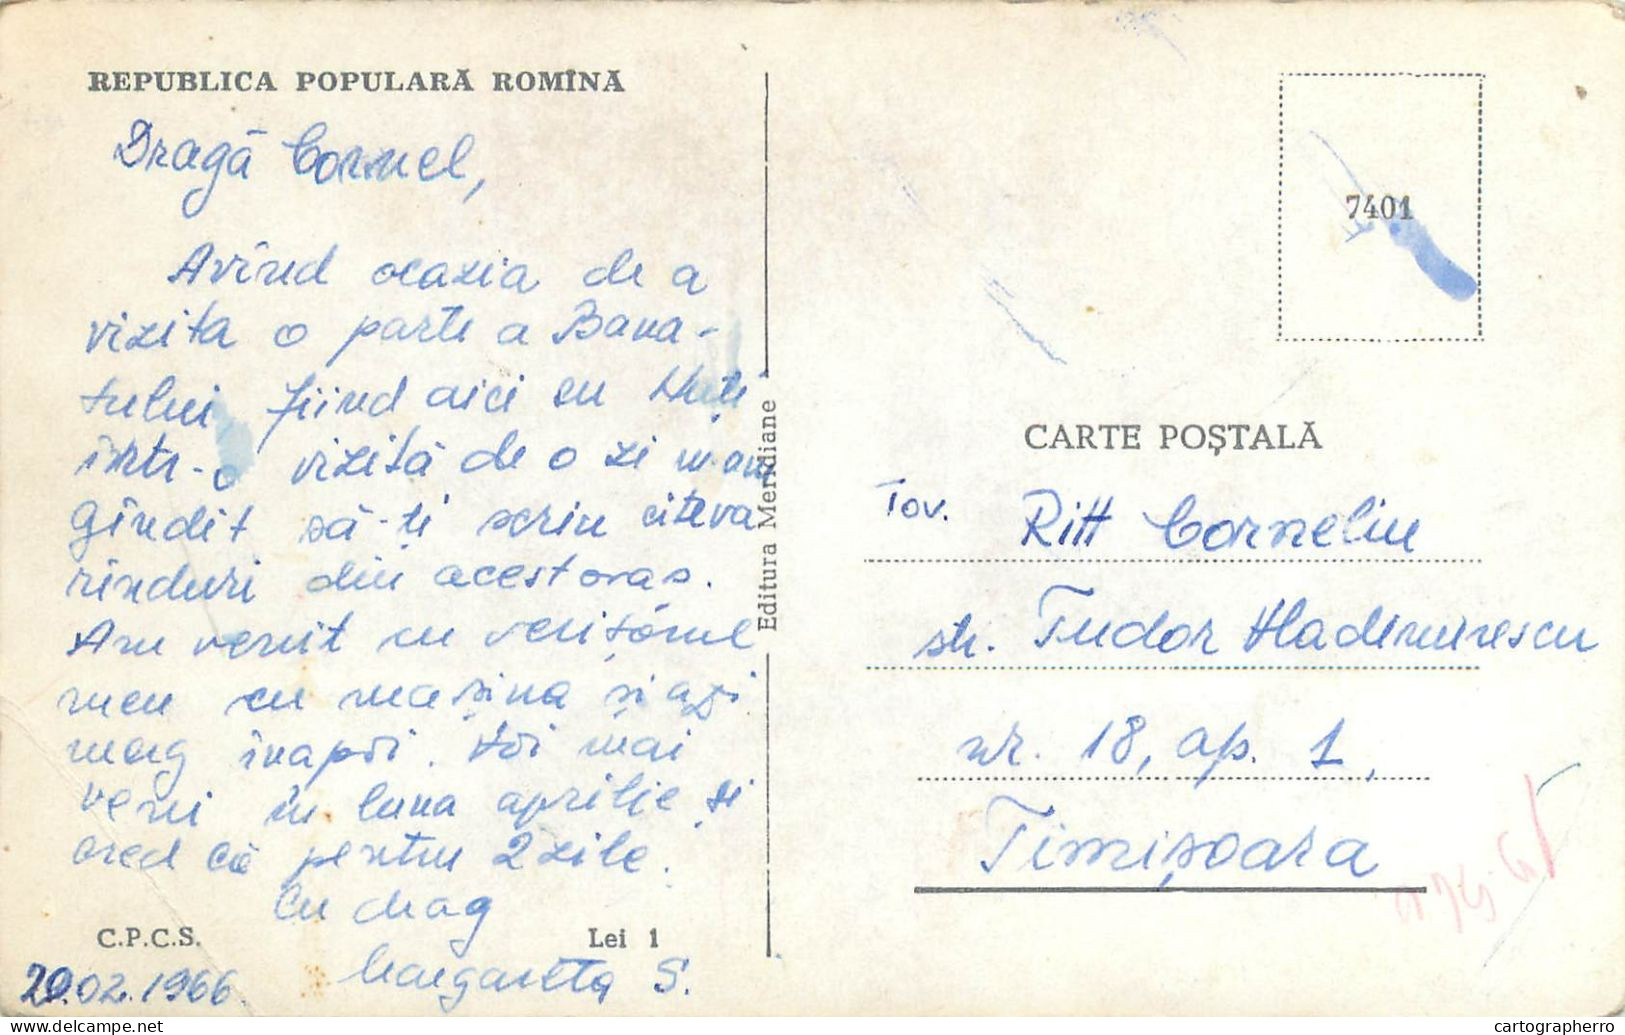 REPUBLICA POPULARĂ ROMÎNĂ
Dragă Cornel,
Avînd ocazia de a
vizita o parte a Bana-
tului, fiind aici cu
într-o vizită de o zi m-am
gîndit să-ți scriu cîteva
rînduri din acest oraș.
Am venit cu verișorul
meu cu mașina și azi
merg înapoi. Voi mai
veni în luna aprilie și
cred că pentru 2 zile.
Cu drag
Margareta S.
C.P.C.S.
Lei 1
20.02.1966
Editura Meridiane
7401
CARTE POȘTALĂ
Tov. Ritt Corneliu
str. Tudor Vladimirescu
nr. 18, ap. 1,
Timișoara
cartographerro